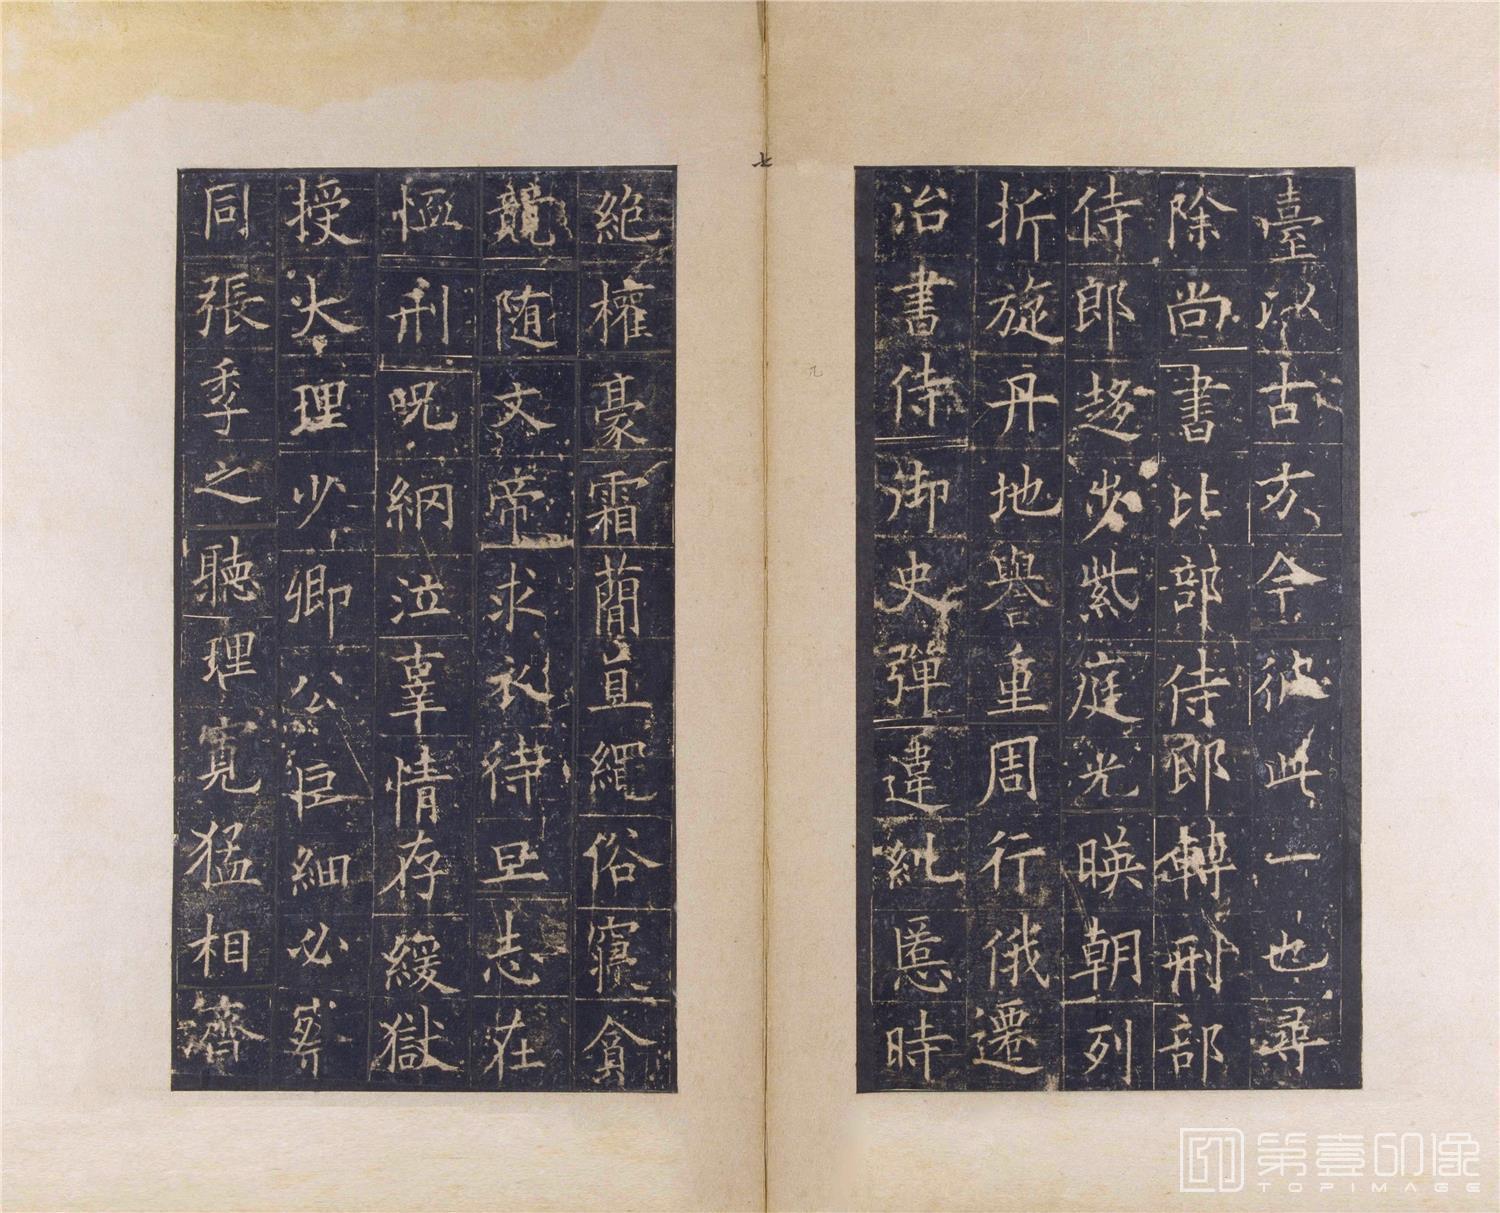 臺以古方今彼此一也尋
除尚書比部侍郎轉刑部
侍郎趍步紫庭光暎朝列
折旋丹地譽重周行俄遷
治書侍御史彈違糺慝時
絶權豪霜蕑直繩俗寢貪
競随文帝求衣待旦志在
恤刑呪網泣辜情存緩獄
授大理少卿公巨細必察
同張季之聽理寛猛相濟
七
第壹印像
TOPIMAGE